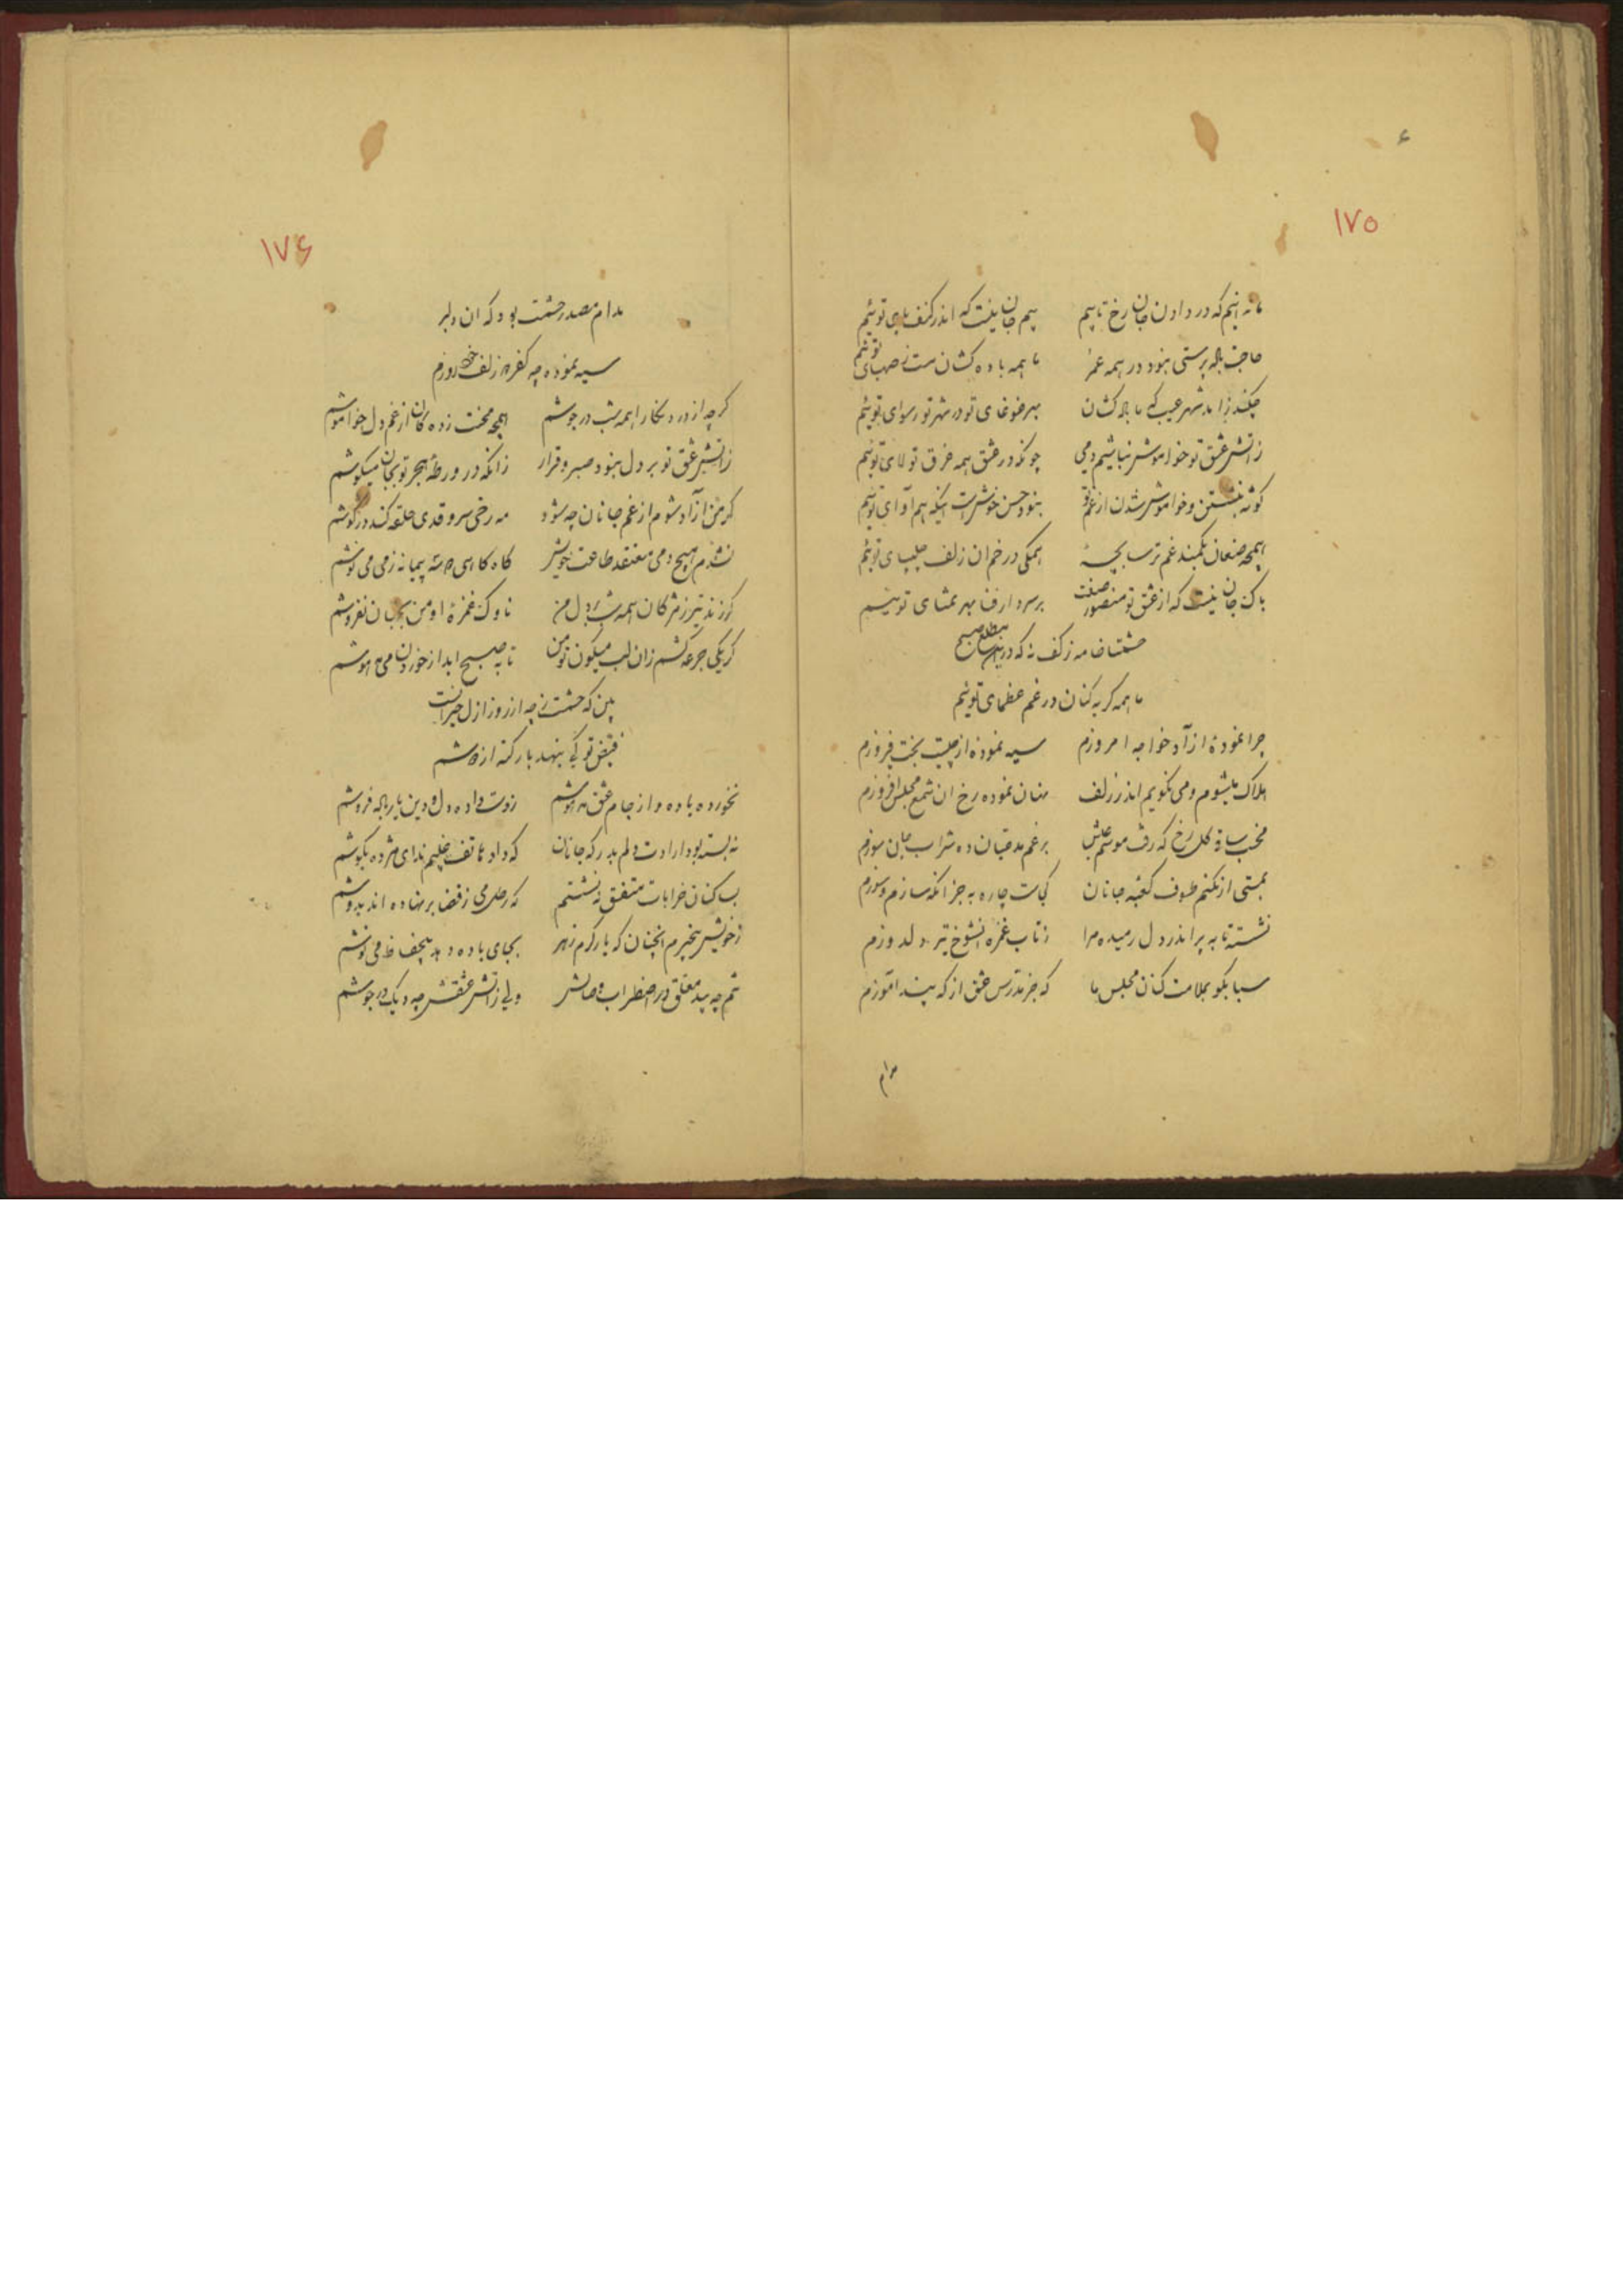 ۱۷۵
ما نه آنیم که در دادن جان رخ تابیم بیم جان نیست که اندر کنف پای توئیم
حاجت باده پرستی نبود در همه عمر ما همه باده کشان مست ز صهبای توئیم
چکند زاهد شهر عیب که ما باده کشان بهر غوغای تو در شهر تو رسوای توئیم
ز آتش عشق تو خواموش نباشیم دمی چونکه در عشق همه غرق تولای توئیم
گوشه بنشستن و خواموش شدن از غم تو نبود حسن خوش است اینکه هم آوای توئیم
همچه صنعان بکمند غم ترسا بچهٔ همگی در خم ان زلف چلیپای توئیم
باک جان نیست که از عشق تو منصور صفت بر سر دار فنا بهر تمنای توئیم
حشمتا خامه ز کف نه که درین مطلع صبح
ما همه گریه کنان در غم عظمای توئیم
چرا نمودهٔ از آه خواجه امروزم سیه نموده از چیست بخت فیروزم
هلاک میشوم و می نگویم اندر زلف نهان نموده رخ ان شمع مجلس افروزم
بر غم مدعیان ده شراب جان سوزم
بمستی ار نکنم طوف کعبه جانان کجاست چاره به جز انکه سازم و سوزم
نشسته تا به پر اندر دل رمیده مرا ز تاب غمزه انشوخ تیر دلدوزم
سبا بگو بملامت کنان مجلس ما که جز مدرس عشق از که پند آموزم
مدام
۱۷۶
مدام مصدر حشمت بود که ان دلبر
سیه نموده چه کفر ز زلف خود روزم
گرچه از درد نگارا همه شب در جوشم همچه محنت زده گان از غم دل خواموشم
ز آتش عشق تو بر دل نبود صبر و قرار زانکه در ورطهٔ هجر تو بجان میکوشم
گر من آزاد شوم از غم جانان چه شود مه رخی سرو قدی حلقه کند در گوشم
نشدم هیچ دمی معتقد طاعت خویش گاه گاهی دو سه پیمانه ز می می نوشم
گر زند تیر ز مژگان همه شب بر دل من ناوک غمزهٔ او من بجهان نفروشم
گر یکی جرعه کشم زان لب میگون تو من تا به صبح ابد از خوردن می مدهوشم
بین که حشمت ز چه از روز ازل حیرانست
فیض تو کی بنهد بار گنه از دوشم
نخورده باده و از جام عشق مدهوشم ز دست داده دل و دین بیار باده فروشم
نه بسته بود ارادت دلم بدرگه جانان که داد هاتف غیبم ندای مژده بگوشم
بساکنان خرابات متفق نه نشستم که رطل می ز قضا بر نهاده اند بدوشم
ز خویش بیخبرم انچنان که یار گرم زهر بجای باده دهد بیحفاظ می نوشم
تنم چه بید معلق در اضطراب وصالش ولی ز آتش عشقش چه دیگ در جوشم